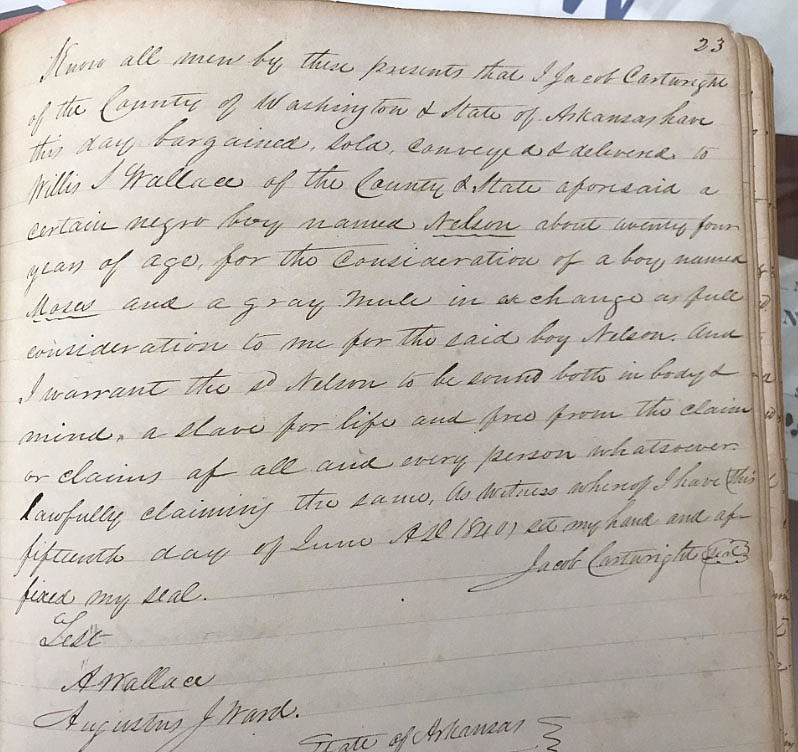 23
Know all men by these presents that I Jacob Cartwright
of the County of Washington & State of Arkansas have
this day bargained, sold, conveyed & delivered to
Willis S Wallace of the County & State aforesaid a
certain negro boy named Nelson about twenty four
years of age, for the consideration of a boy named
Moses and a gray mule in exchange as full
consideration to me for the said boy Nelson. And
I warrant the sd Nelson to be sound both in body &
mind, a slave for life and free from the claim
or claims of all and every person whatsoever
lawfully claiming the same, As witness whereof I have this
fifteenth day of June AD 1840, set my hand and af-
fixed my seal.
Jacob Cartwright Seal
Test
A Wallace
Augustus J Ward.
State of Arkansas